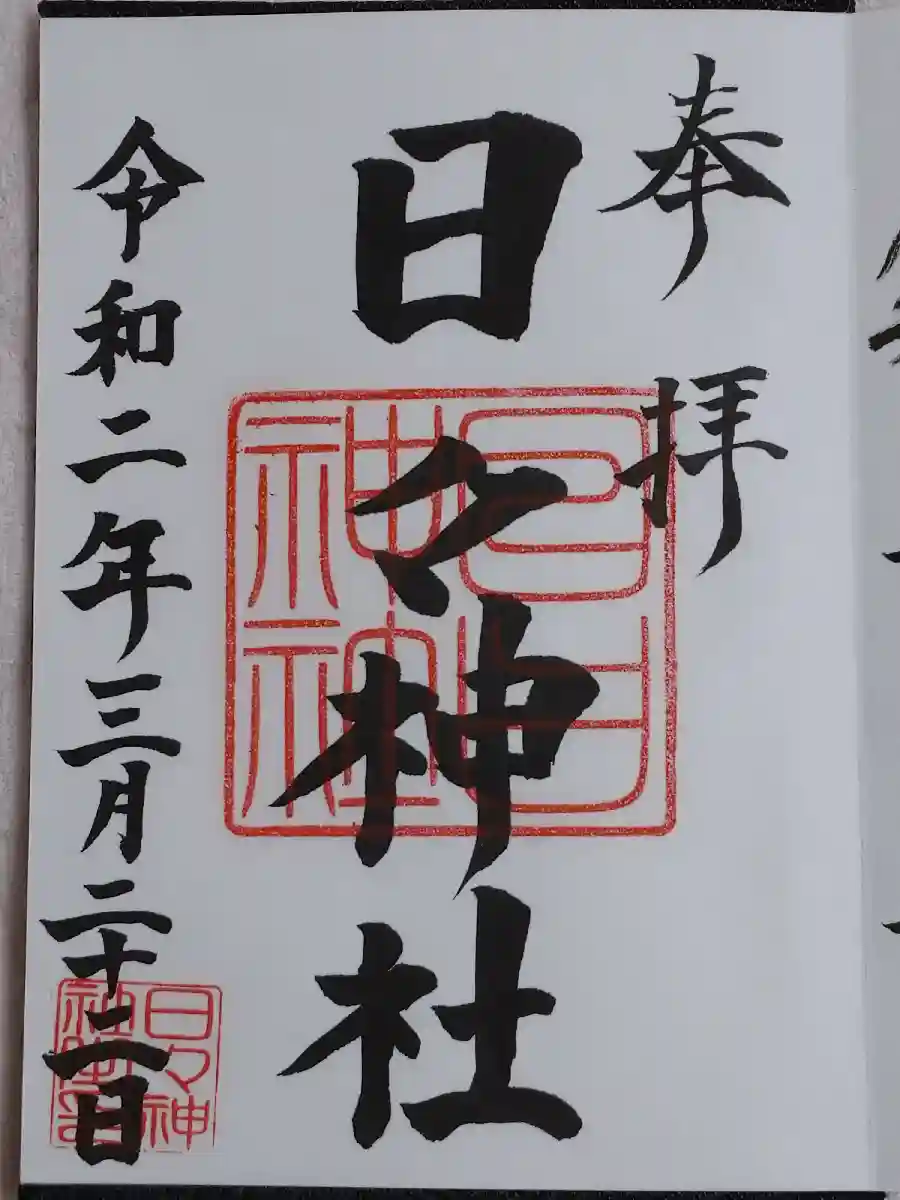 奉拝
日々神社
令和二年三月二十二日
日日神社
日々神社